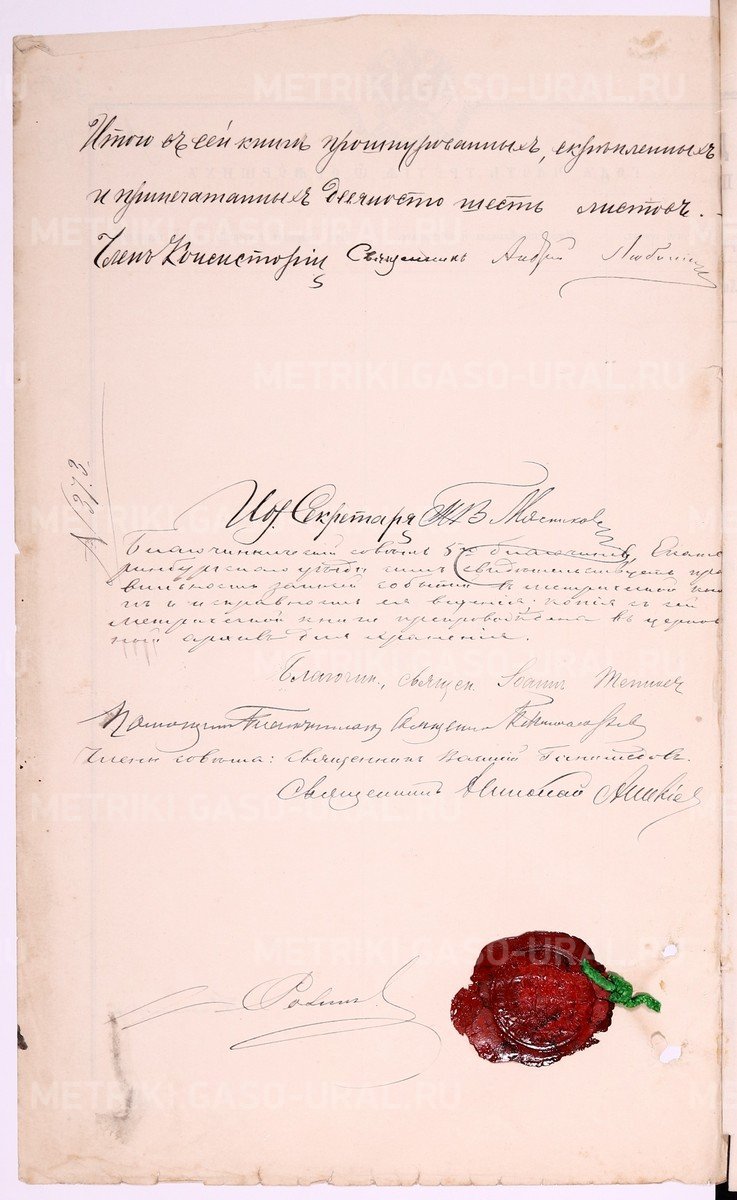 Итого въ сей книгѣ прошнурованныхъ, скрѣпленныхъ
и припечатанныхъ девяносто шесть листовъ.
Членъ Консисторіи Священникъ Андрей
Иоф. Секретаря
Благочинническій совѣтъ 5го благочинія, Екате
ринбургскаго уѣзда симъ свидѣтельствуетъ пра
вильность записей событій въ метрической кни
гѣ и исправность ея веденія; копія съ сей
метрической книги препровождена въ церков
ной архивъ для храненія.
Благочин., священ. Іоаннъ
Помощникъ Благочиннаго Священникъ
Члены совѣта: священникъ
Священникъ Николай
METRIKI.GASO-URAL.RU